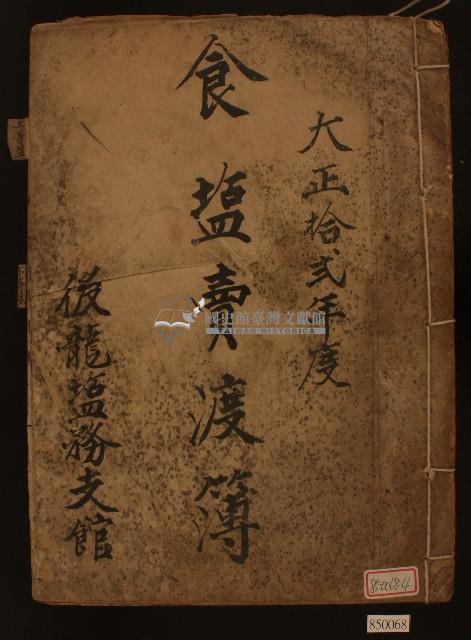 大正拾弍年度
食塩賣渡簿
後龍塩務支館
國史館臺灣文獻館
TAIWAN HISTORICA
850068-4
850068